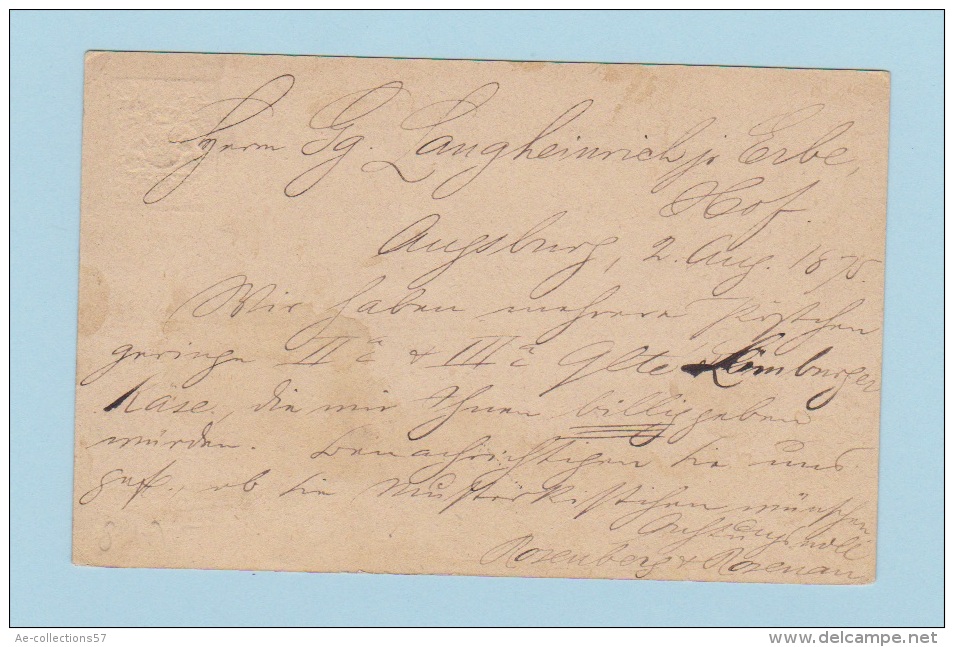 Herrn Gg. Langheinrich jr Erbe,
Hof.
Augsburg, 2. Aug. 1875.
Wir haben mehrere Pöstchen
geringe IIa & IIIa Qlte Limburger
Käse, die wir Ihnen billig geben
würden. Benachrichtigen Sie uns
gefl., ob Sie Musterkistchen wünschen
Achtungsvoll
Rosenberg & Rosenau
Ae-collections57
www.delcampe.net